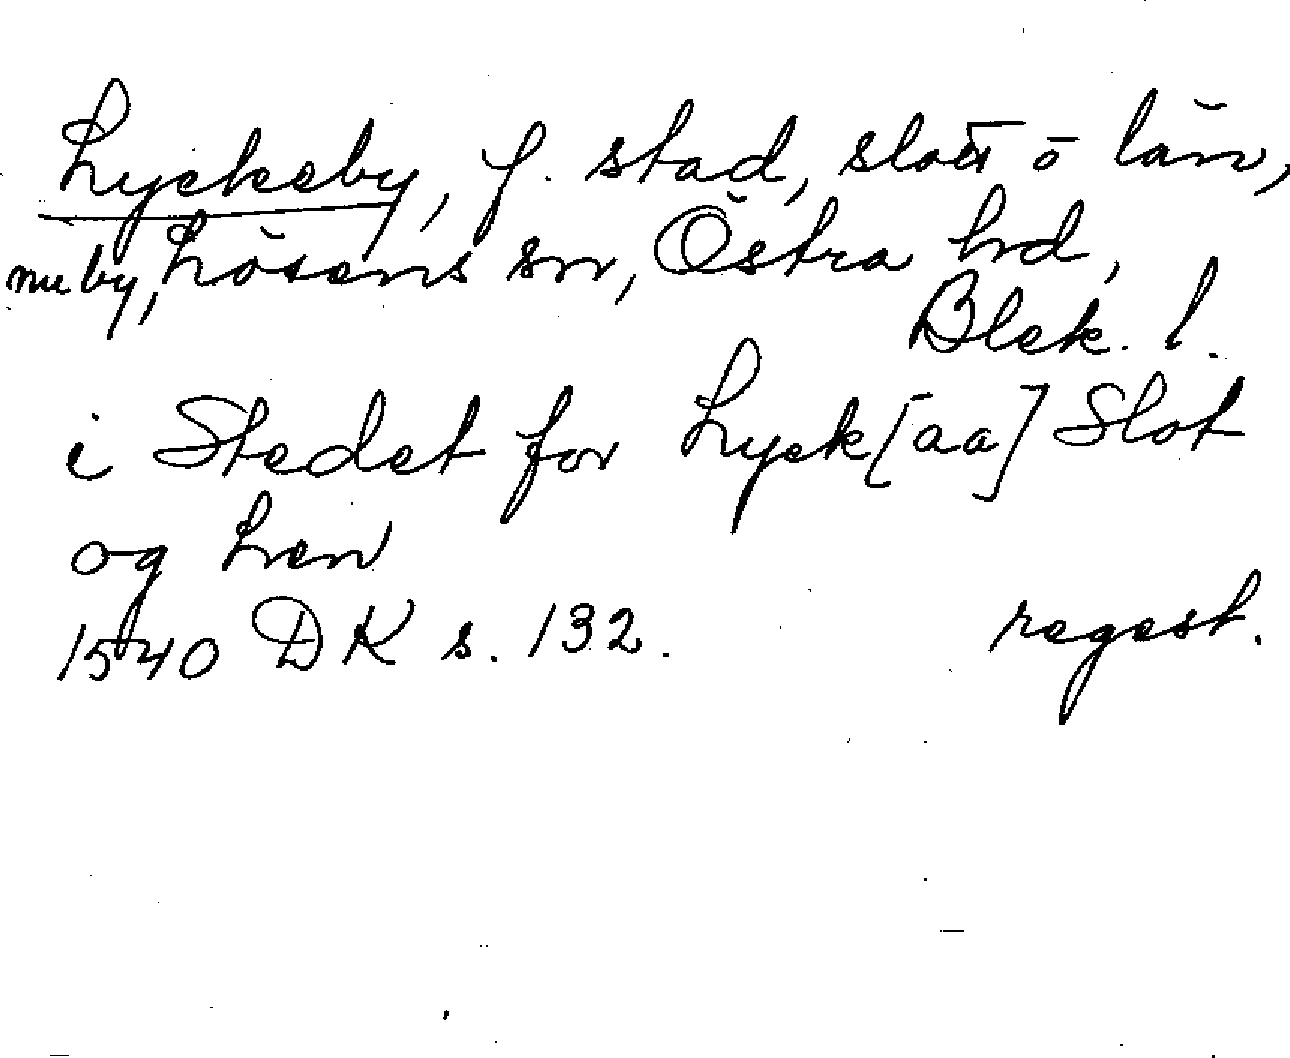 Lyckeby, f. stad, slott o län,
nu by, Lösens sn, Östra hd,
Blek. l.
i Stedet for Lyck[aa] Slot
og Len
1540 DK s. 132. regest.